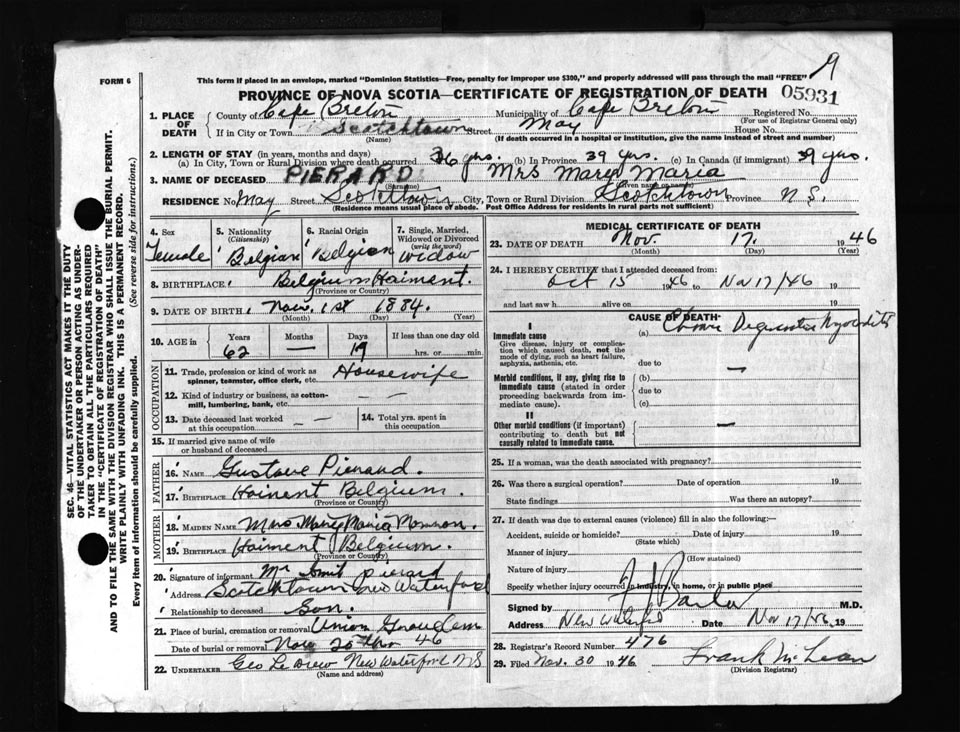 9
FORM 6
This form if placed in an envelope, marked "Dominion Statistics—Free, penalty for improper use $300," and properly addressed will pass through the mail "FREE"
PROVINCE OF NOVA SCOTIA—CERTIFICATE OF REGISTRATION OF DEATH 05931
1. PLACE OF DEATH
County of Cape Breton Municipality of Cape Breton Registered No.
(For use of Registrar General only)
If in City or Town Scotchtown Street May House No.
(Name) (If death occurred in a hospital or institution, give the name instead of street and number)
2. LENGTH OF STAY (in years, months and days)
(a) In City, Town or Rural Division where death occurred 36 yrs. (b) In Province 39 yrs. (c) In Canada (if immigrant) 39 yrs.
3. NAME OF DECEASED PIERARD Mrs Mary Maria
(Surname) (Given name or names)
RESIDENCE No. May Street Scotchtown City, Town or Rural Division Scotchtown Province N.S.
(Residence means usual place of abode. Post Office Address for residents in rural parts not sufficient)
4. Sex Female
5. Nationality (Citizenship) Belgian
6. Racial Origin Belgian
7. Single, Married, Widowed or Divorced (write the word) Widow
8. BIRTHPLACE Belgium Hainent.
(Province or Country)
9. DATE OF BIRTH Nov. 1st 1884.
(Month) (Day) (Year)
10. AGE in Years Months Days If less than one day old
62 19 hrs. or min.
OCCUPATION
11. Trade, profession or kind of work as spinner, teamster, office clerk, etc. Housewife
12. Kind of industry or business, as cotton-mill, lumbering, bank, etc. — —
13. Date deceased last worked at this occupation — —
14. Total yrs. spent in this occupation
15. If married give name of wife or husband of deceased
FATHER
16. NAME Gustave Pierard.
17. BIRTHPLACE Hainent Belgium.
(Province or Country)
MOTHER
18. MAIDEN NAME Mrs Mary Maria
19. BIRTHPLACE Hainent Belgium.
(Province or Country)
20. Signature of informant Mr Pierard
Address Scotchtown New Waterford
Relationship to deceased Son.
21. Place of burial, cremation or removal Union
Date of burial or removal Nov 20th 46
22. UNDERTAKER Geo LeDrew New Waterford N.S.
(Name and address)
MEDICAL CERTIFICATE OF DEATH
23. DATE OF DEATH Nov. 17. 1946
(Month) (Day) (Year)
24. I HEREBY CERTIFY that I attended deceased from:
Oct 15 1946 to Nov 17/46 19
and last saw h alive on 19
CAUSE OF DEATH
I
Immediate cause
Give disease, injury or complication which caused death, not the mode of dying, such as heart failure, asphyxia, asthenia, etc.
(a) Chronic Myocarditis
due to —
Morbid conditions, if any, giving rise to immediate cause (stated in order proceeding backwards from immediate cause).
(b)
due to
(c)
II
Other morbid conditions (if important) contributing to death but not causally related to immediate cause.
—
25. If a woman, was the death associated with pregnancy?
26. Was there a surgical operation? Date of operation 19
State findings Was there an autopsy?
27. If death was due to external causes (violence) fill in also the following:—
Accident, suicide or homicide? Date of injury 19
(State which)
Manner of injury
(How sustained)
Nature of injury
Specify whether injury occurred in industry, in home, or in public place
Signed by M.D.
Address New Waterford Date Nov 17/46 19
28. Registrar's Record Number 476
29. Filed Nov. 30 1946 Frank McLean
(Division Registrar)
SEC. 46—VITAL STATISTICS ACT MAKES IT THE DUTY
OF THE UNDERTAKER OR PERSON ACTING AS UNDER-
TAKER TO OBTAIN ALL THE PARTICULARS REQUIRED
IN THE "CERTIFICATE OF REGISTRATION OF DEATH"
AND TO FILE THE SAME WITH THE DIVISION REGISTRAR WHO SHALL ISSUE THE BURIAL PERMIT.
WRITE PLAINLY WITH UNFADING INK. THIS IS A PERMANENT RECORD.
Every item of information should be carefully supplied. (See reverse side for instructions.)